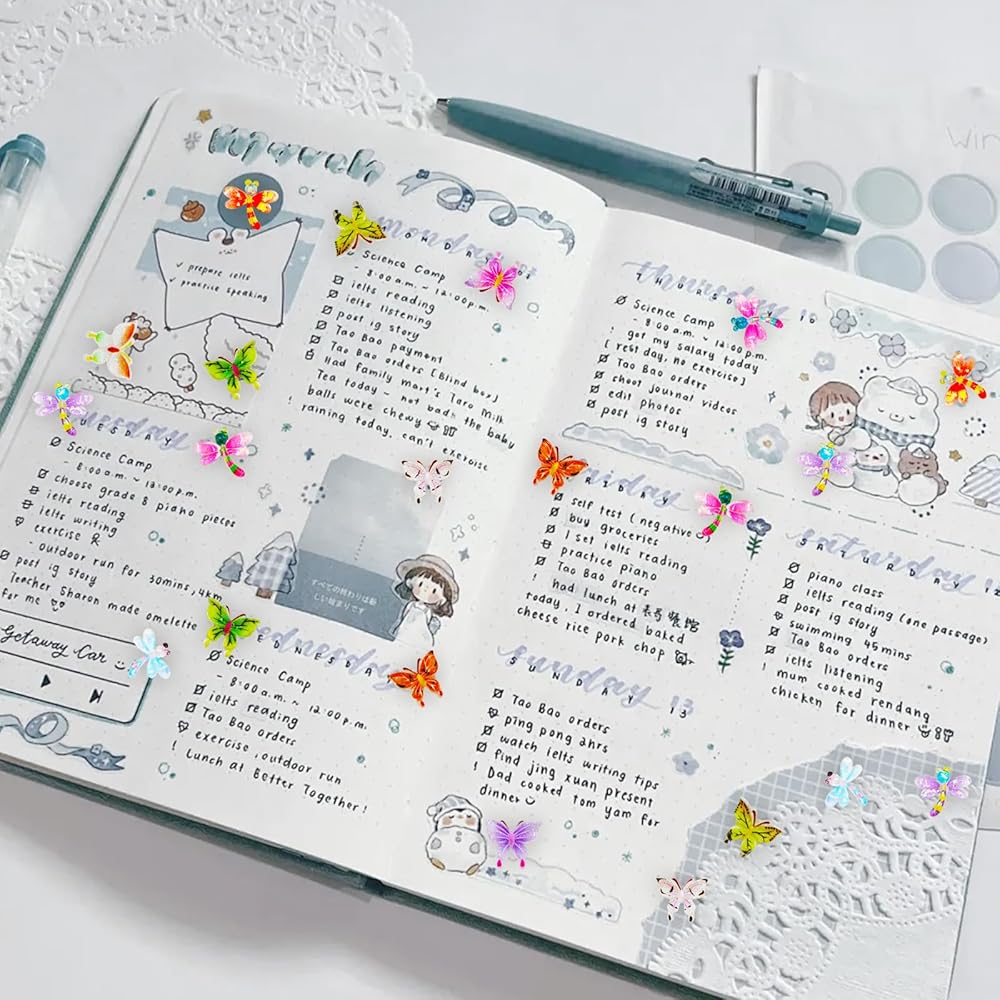 March
prepare ielts
practise speaking
Monday
MONDAY
Science Camp
- 8:00 a.m. ~ 12:00 p.m.
ielts reading
ielts listening
post ig story
Tao Bao payment
Tao Bao orders [Blind box]
! Had family mart's Taro Milk
Tea today - not bad! the baby
balls were chewy
raining today, can't
exercise
Science Camp
- 8:00 a.m. ~ 12:00 p.m.
choose grade 8 piano pieces
ielts reading
ielts writing
exercise
- outdoor run for 30mins, 4km
post ig story
Teacher Sharon made omelette
for me
Getaway Car
Science Camp
- 8:00 a.m. ~ 12:00 p.m.
ielts reading
Tao Bao orders
exercise, outdoor run
! Lunch at Better Together!
すべての終わりは新
しい始まりです
thursday 10
Science Camp
- 8:00 a.m. ~ 12:00 p.m.
! got my salary today
[rest day, no exercise]
Tao Bao orders
shoot journal videos
edit photos
post ig story
self test (negative)
buy groceries
1 set ielts reading
practice piano
Tao Bao orders
! had lunch at
today. I ordered baked
cheese rice pork chop
saturday 12
SATURDAY
piano class
ielts reading (one passage)
post ig story
swimming 45mins
Tao Bao orders
ielts listening
! mum cooked rendang
chicken for dinner
sunday 13
SUNDAY
Tao Bao orders
ping pong 2hrs
watch ielts writing tips
find jing xuan present
! Dad cooked tom yam for
dinner